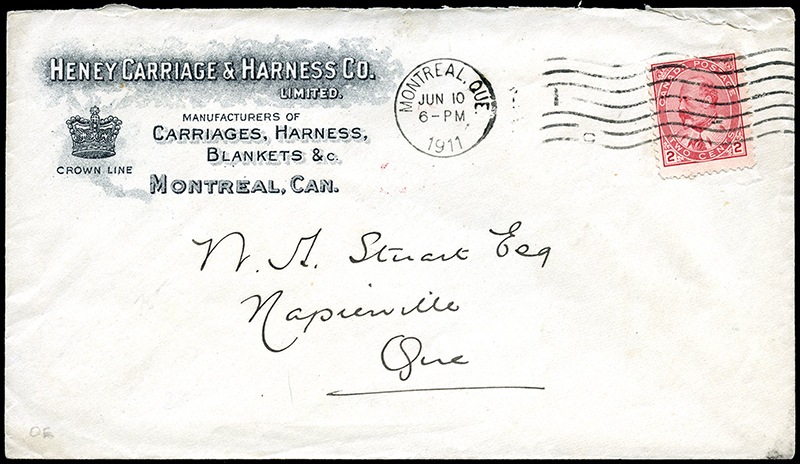 HENEY CARRIAGE & HARNESS CO.
LIMITED.
MANUFACTURERS OF
CARRIAGES, HARNESS,
BLANKETS &C.
MONTREAL, CAN.
CROWN LINE
MONTREAL, QUE.
JUN 10
6-PM
1911
CANADA POSTAGE
2 2
TWO CENTS
W. A. Stuart Esq
Napierville
Que